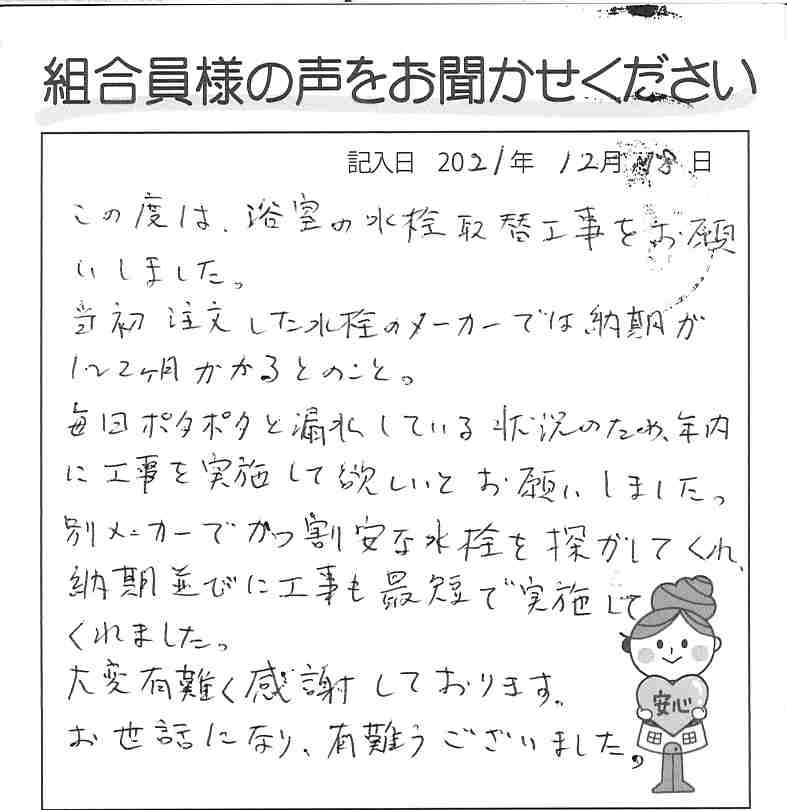 組合員様の声をお聞かせください
記入日 2021年 12月 18日
この度は、浴室の水栓取替工事をお願
いしました。
当初注文した水栓のメーカーでは納期が
1~2ヶ月かかるとのこと。
毎日ポタポタと漏水している状況のため、年内
に工事を実施して欲しいとお願いしました。
別メーカーでかつ割安な水栓を探がしてくれ、
納期並びに工事も最短で実施して
くれました。
大変有難く感謝しております。
お世話になり、有難うございました。
安心